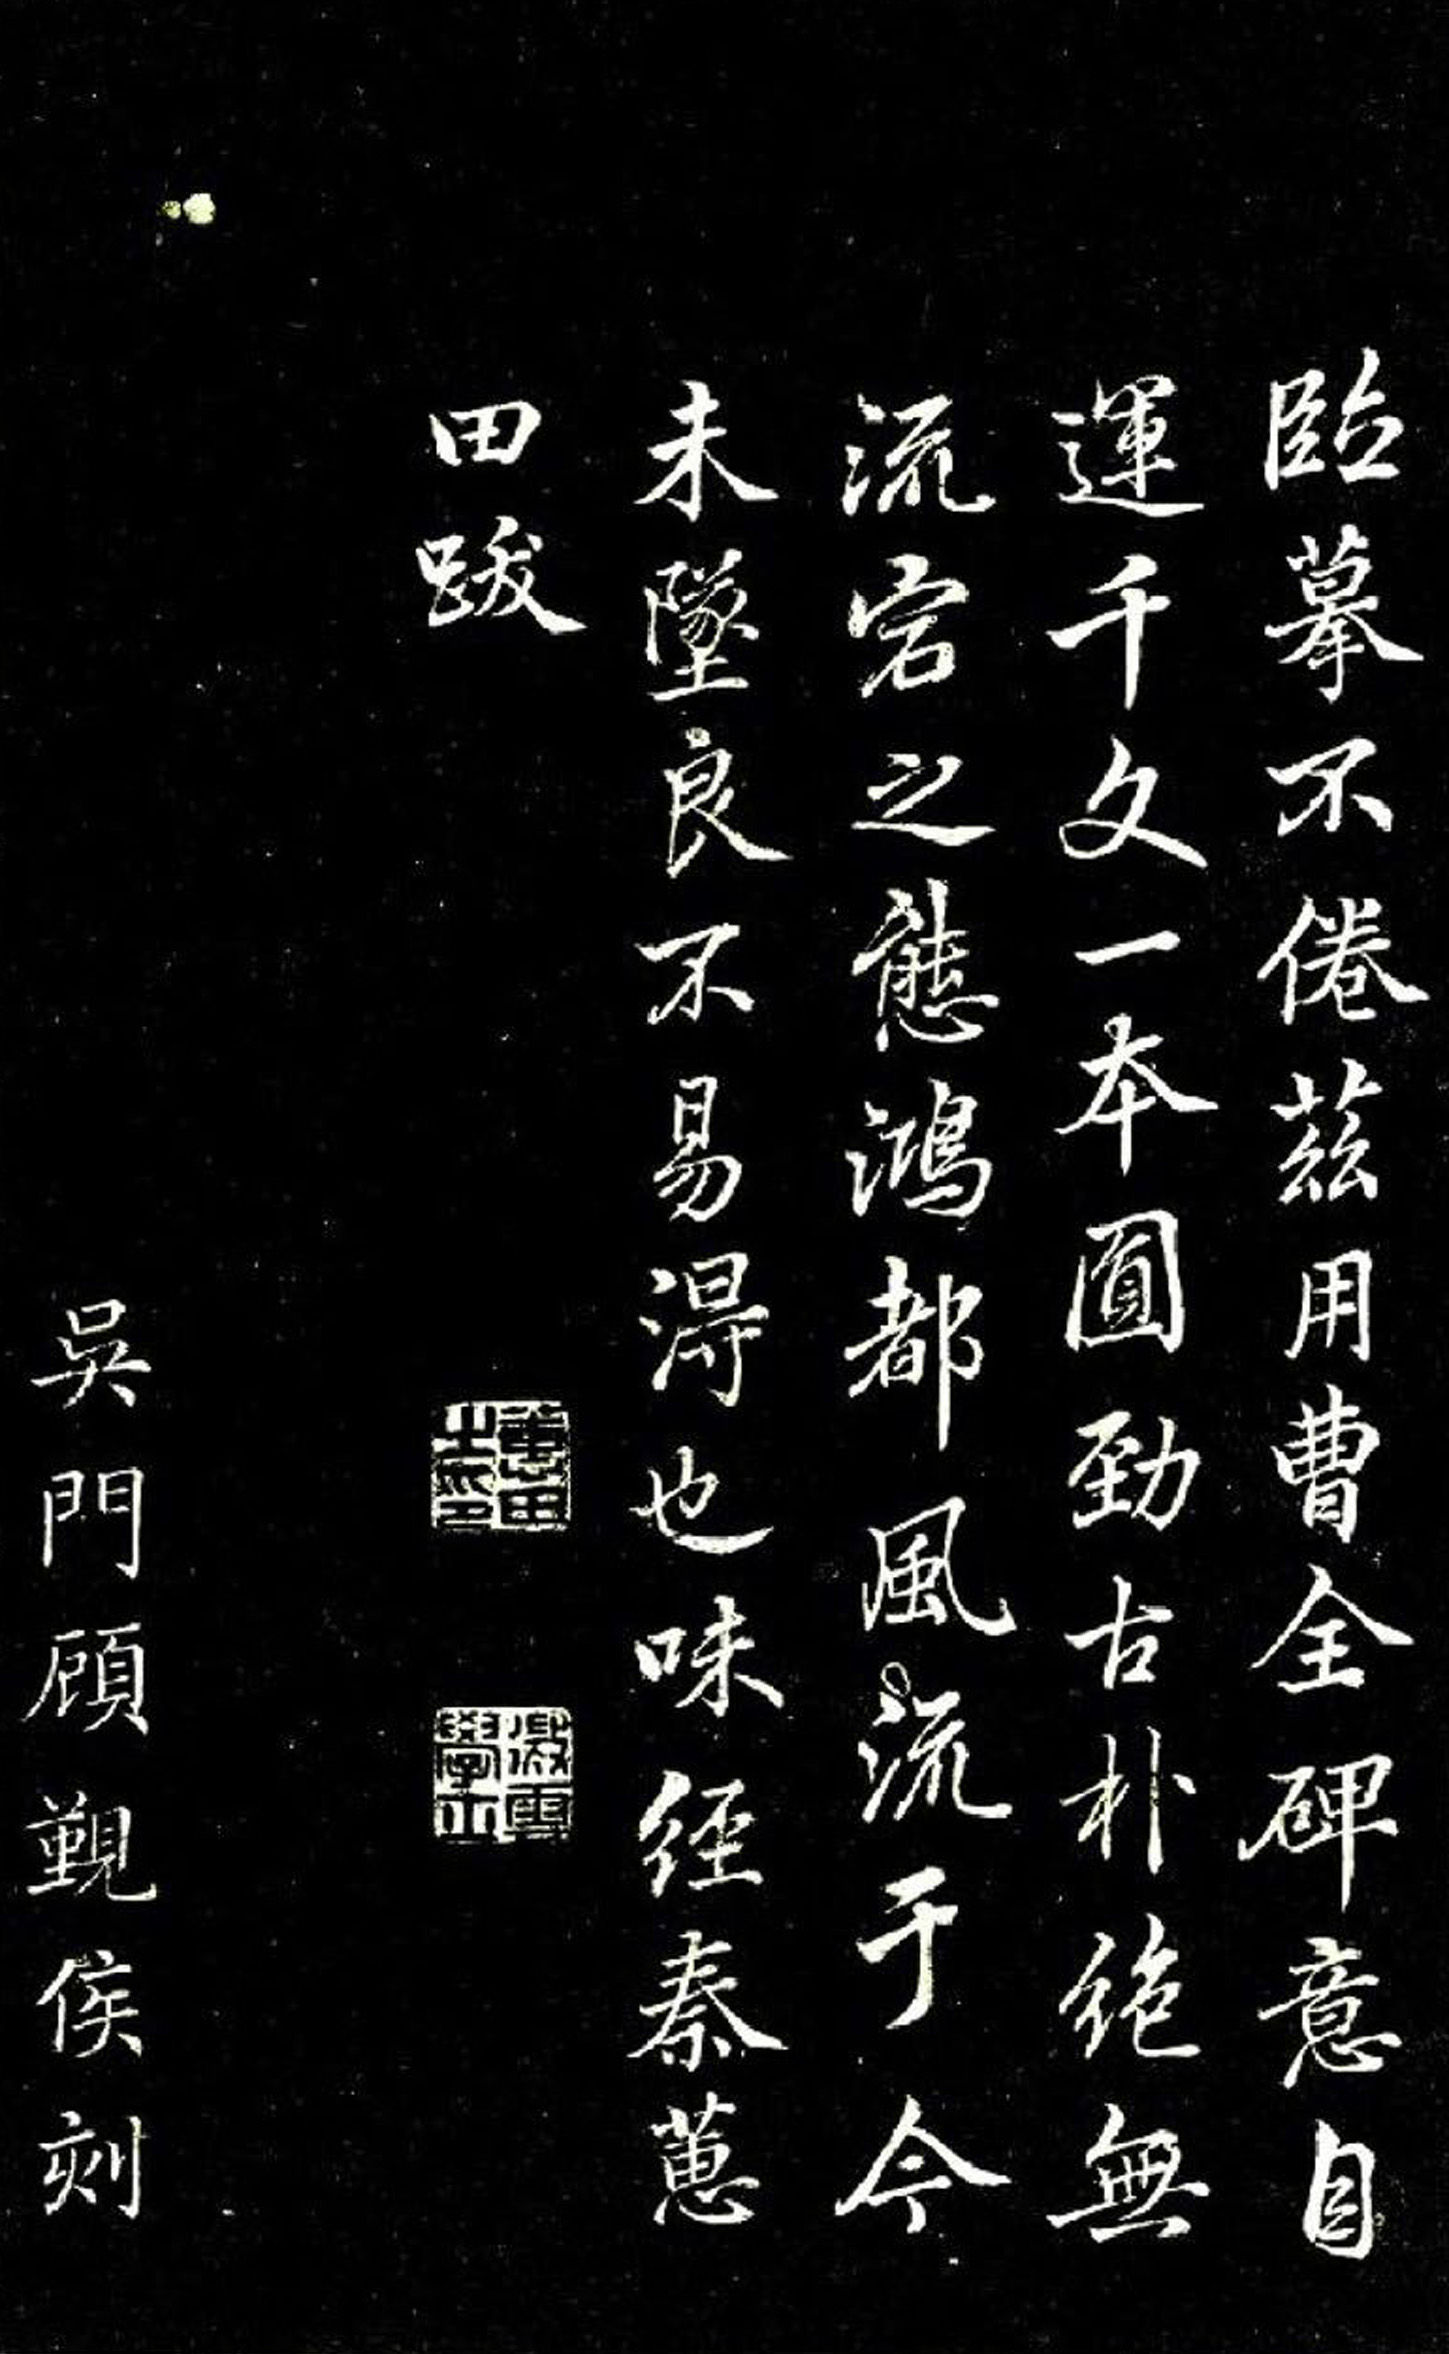 臨摹不倦茲用曹全碑意自
運千文一本圓勁古朴絶無
流宕之態鴻都風流于今
未墜良不易得也味経秦蕙
田跋
蕙田之印
吳門顧覲侯刻